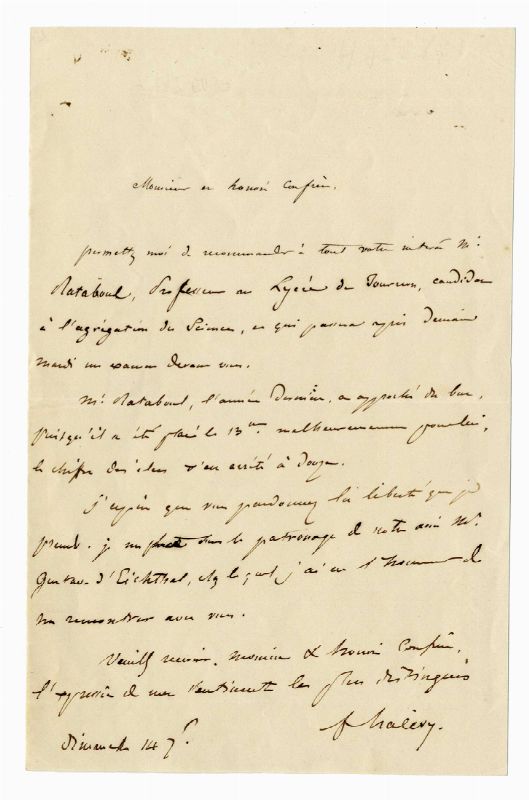 Monsieur et honoré Confrère,
permettez moi de recommander à tout votre intérêt Mr.
Rataboul, Professeur au Lycée de Tournon, candidat
à l'agrégation des Sciences, et qui passera après demain
mardi un examen devant vous.
Mr. Rataboul, l'année dernière, a approché du but,
puisqu'il a été placé le 13me. malheureusement pour lui,
le chiffre des élus s'est arrêté à douze.
J'espère que vous pardonnez la liberté que je
prends. je me dans le patronage de notre ami Mr.
Gustave d'Eichthal, chez lequel j'ai eu l'honneur de
me rencontrer avec vous.
Veuillez recevoir, monsieur & honoré Confrère,
l'expression de mes sentiments les plus distingués
f halévy.
dimanche 14 7